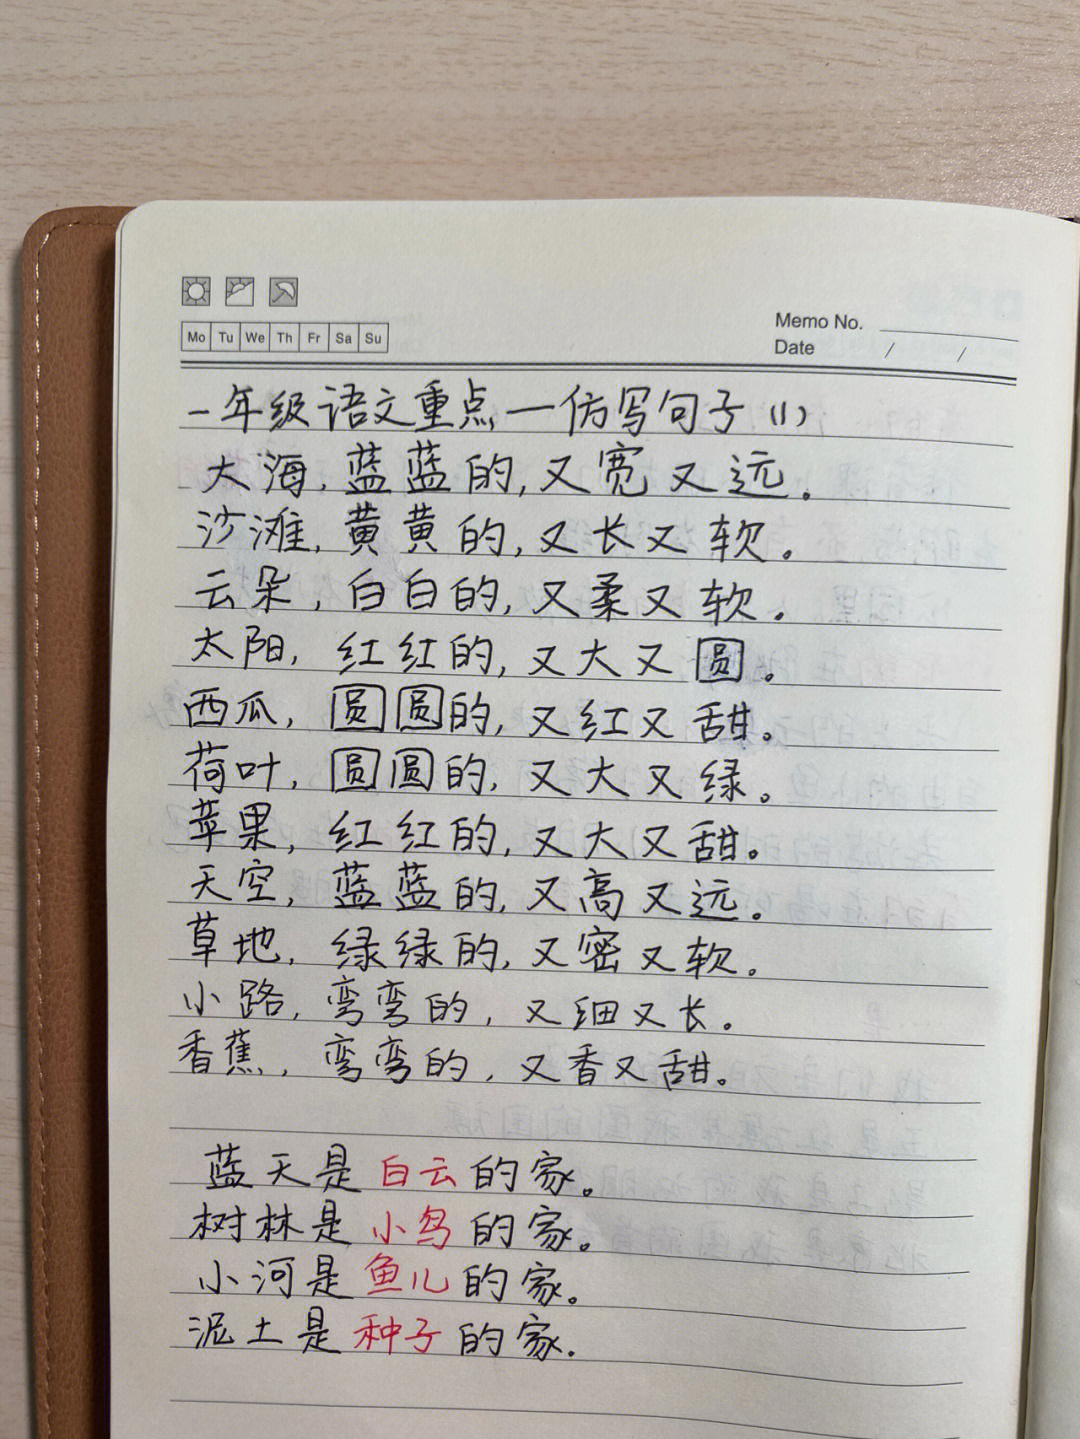 Mo Tu We Th Fr Sa Su
Memo No.
Date / /
一年级语文重点一仿写句子(1)
大海,蓝蓝的,又宽又远。
沙滩,黄黄的,又长又软。
云朵,白白的,又柔又软。
太阳,红红的,又大又圆。
西瓜,圆圆的,又红又甜。
荷叶,圆圆的,又大又绿。
苹果,红红的,又大又甜。
天空,蓝蓝的,又高又远。
草地,绿绿的,又密又软。
小路,弯弯的,又细又长。
香蕉,弯弯的,又香又甜。
蓝天是白云的家。
树林是小鸟的家。
小河是鱼儿的家。
泥土是种子的家.